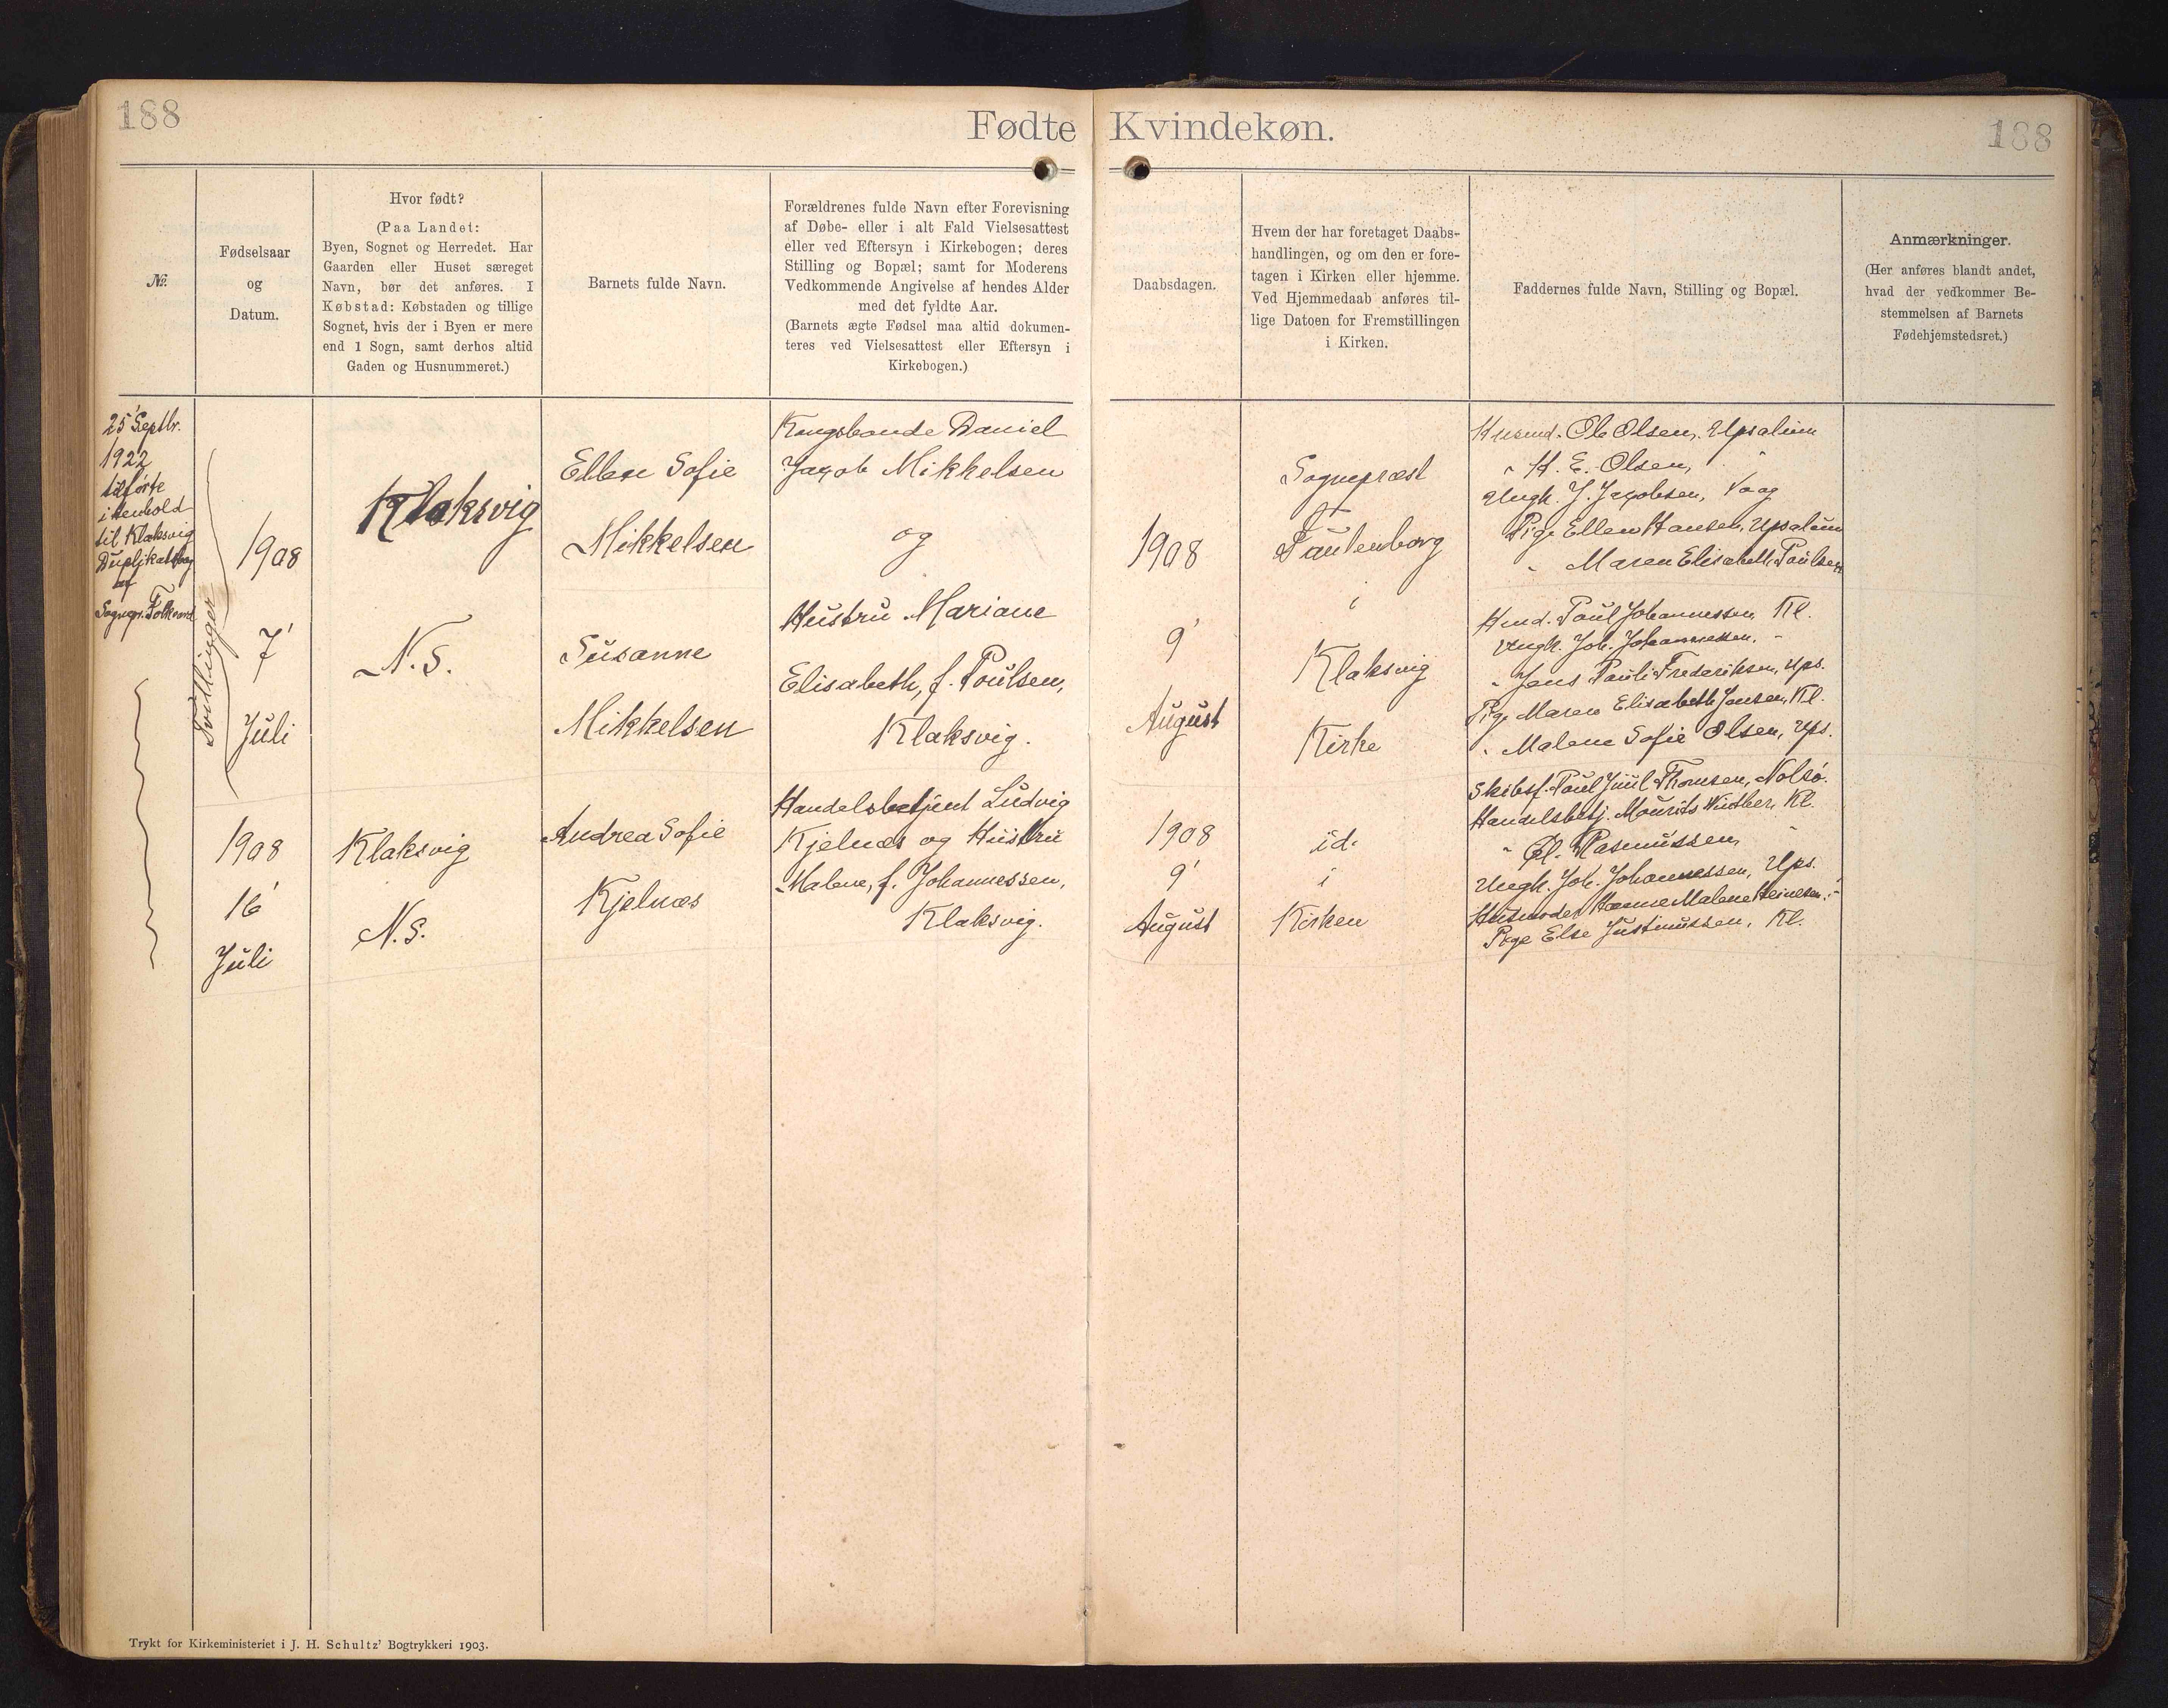 188
Fødte Kvindekøn.
188
№.
Fødselsaar
og
Datum.
Hvor født?
(Paa Landet:
Byen, Sognet og Herredet. Har
Gaarden eller Huset særeget
Navn, bør det anføres. I
Købstad: Købstaden og tillige
Sognet, hvis der i Byen er mere
end 1 Sogn, samt derhos altid
Gaden og Husnummeret.)
Barnets fulde Navn.
Forældrenes fulde Navn efter Forevisning
af Døbe- eller i alt Fald Vielsesattest
eller ved Eftersyn i Kirkebogen; deres
Stilling og Bopæl; samt for Moderens
Vedkommende Angivelse af hendes Alder
med det fyldte Aar.
(Barnets ægte Fødsel maa altid dokumen-
teres ved Vielsesattest eller Eftersyn i
Kirkebogen.)
Daabsdagen.
Hvem der har foretaget Daabs-
handlingen, og om den er fore-
tagen i Kirken eller hjemme.
Ved Hjemmedaab anføres til-
lige Datoen for Fremstillingen
i Kirken.
Faddernes fulde Navn, Stilling og Bopæl.
Anmærkninger.
(Her anføres blandt andet,
hvad der vedkommer Be-
stemmelsen af Barnets
Fødehjemstedsret.)
25' Septbr.
1922
tilførte
i Henhold
til Klaksvig
Duplikatbog
af
Sognepr.
Tvillinger
1908
7'
Juli
Klaksvig
N. S.
Ellen Sofie
Mikkelsen
Susanne
Mikkelsen
Kongsbonde Daniel
Jacob Mikkelsen
og
Hustru Mariane
Elisabeth, f. Poulsen,
Klaksvig.
1908
9'
August
Sognepræst
Fautenborg
i
Klaksvig
Kirke
Husmd. Ole Olsen, Upsalum
" H. E. Olsen, "
Ungk. J. Jacobsen, Vaag
Pige Ellen Hansen, Upsalum
" Maren Elisabeth Poulsen
Hmd. Poul Johannessen, Kl.
Ungk. Joh. Johannessen, "
" Jens Pauli Frederiksen, Ups.
Pige Maren Elisabeth Jensen, Kl.
" Malene Sofie Olsen, Ups.
1908
16'
Juli
Klaksvig
N. S.
Andrea Sofie
Kjelnæs
Handelsbetjent Ludvig
Kjelnæs og Hustru
Malene, f. Johannessen,
Klaksvig.
1908
9'
August
id.
i
Kirken
Skibsf. Poul Juul Thomsen, Nolsö.
Handelsbetj. Mourits Winther, Kl.
" Rasmussen, "
Ungk. Joh. Johannessen, Ups.
Husmoder Hanne Malene Heinesen, "
Pige Else Justinussen, Kl.
Trykt for Kirkeministeriet i J. H. Schultz' Bogtrykkeri 1903.